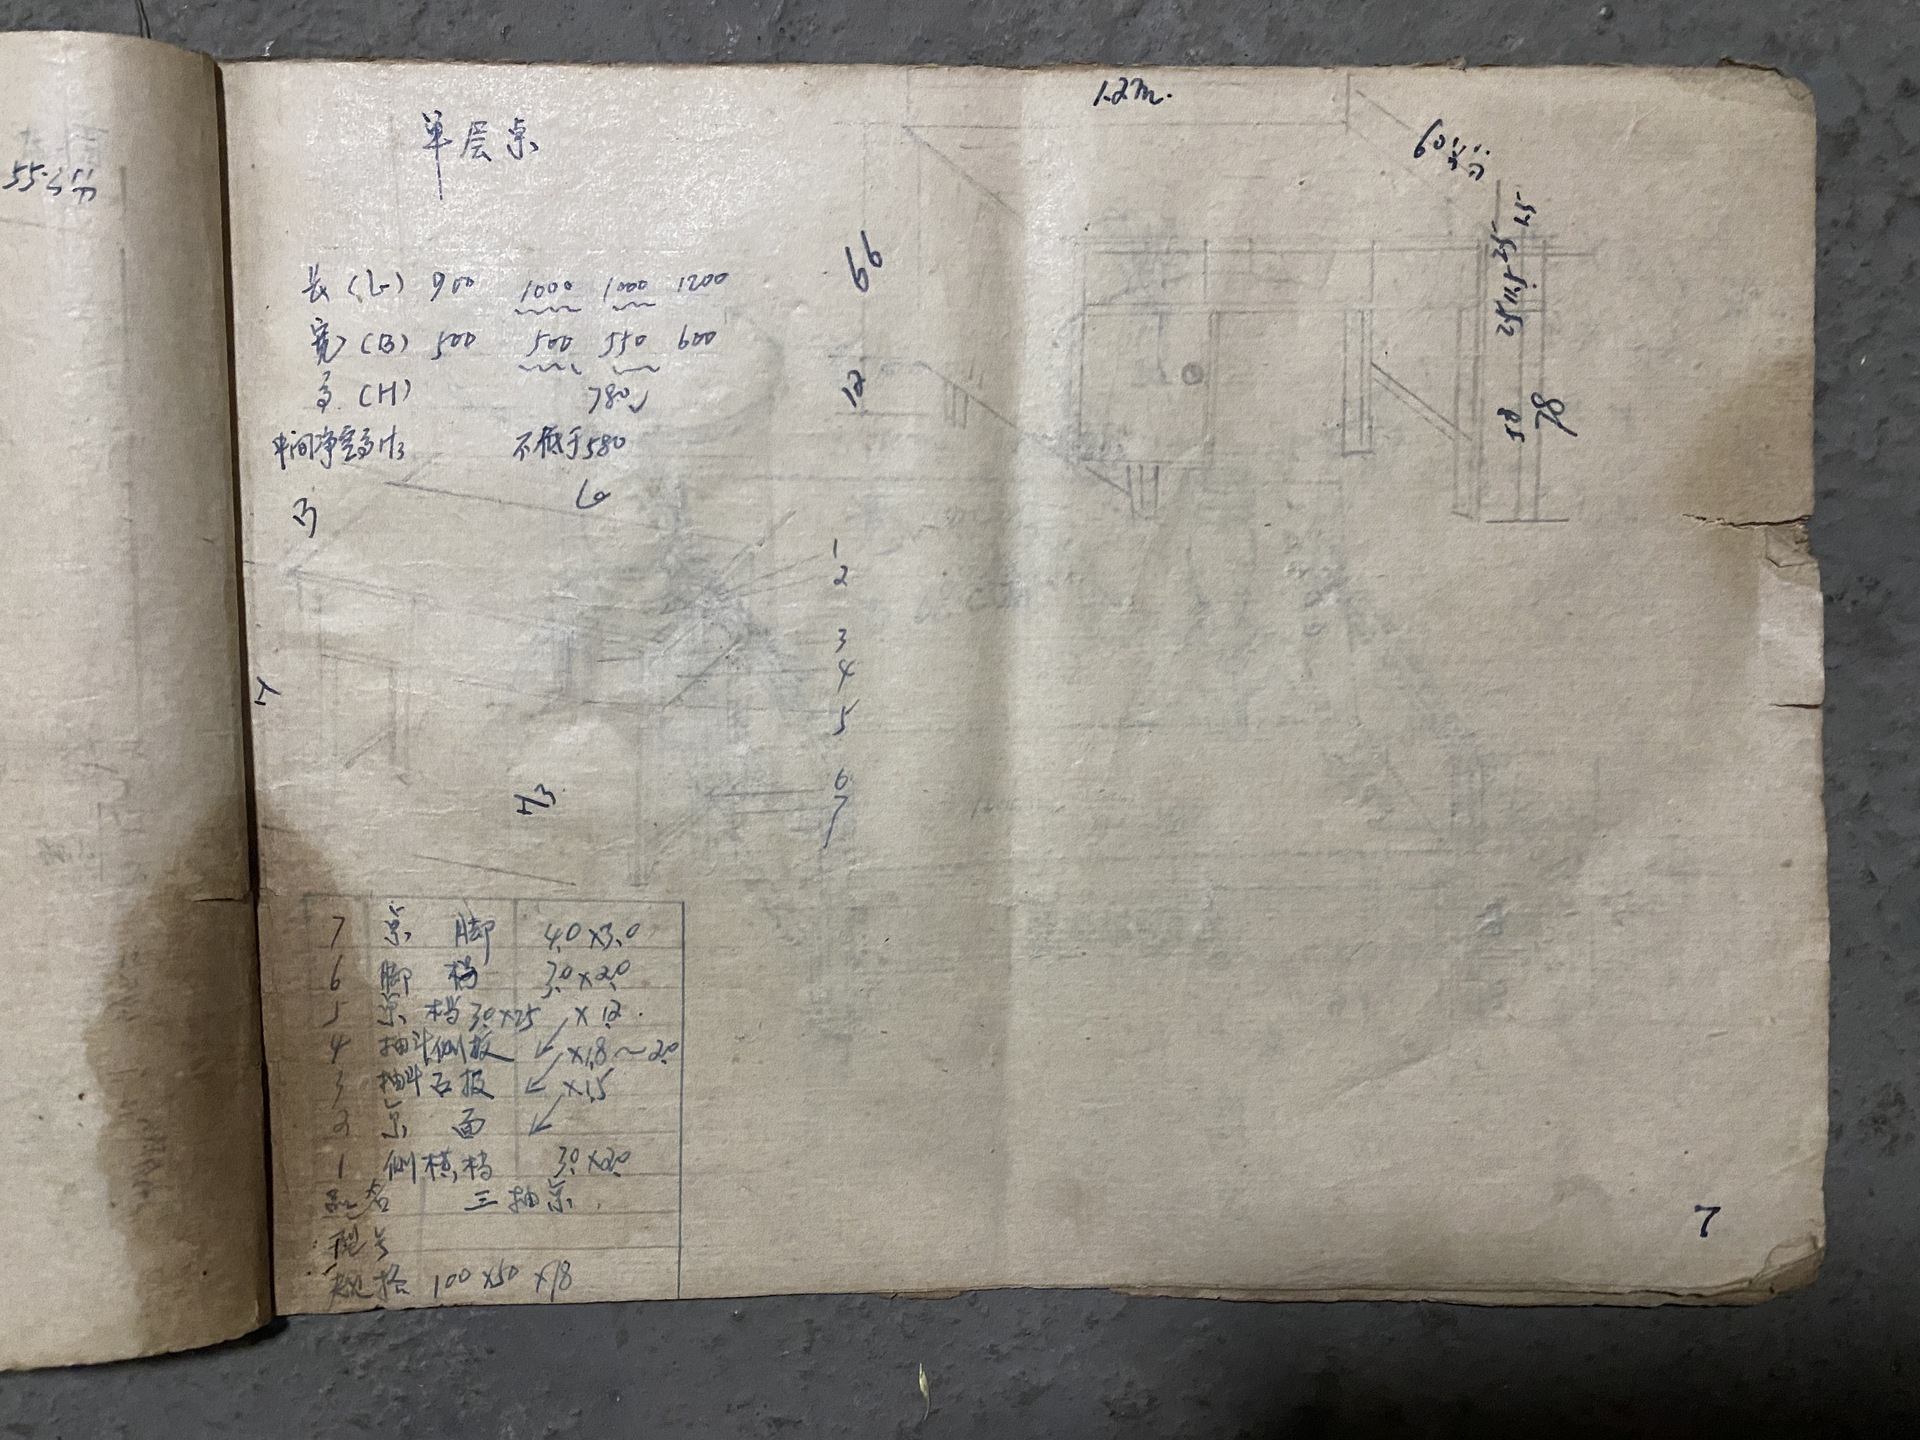 55公分
单层桌
长(L) 900 1000 1000 1200
宽(B) 500 500 550 600
高(H) 780
中间净空高H3 不低于580
1.2m.
60公分
66
12
15
25
25
58
78
1
2
3
4
5
6
7
H3
7 桌 脚 4.0×3.0
6 脚 档 3.0×2.0
5 桌 档 3.0×25 ×1.2.
4 抽斗侧板 ×1.8~2.0
3 抽斗石板 ×1.5
2 桌 面
1 侧横档 3.0×2.0
品名 三抽桌.
型号
规格 100×50×18
7